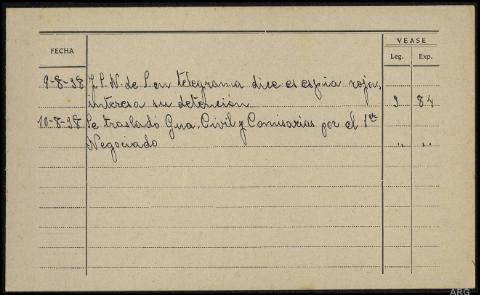 VEASE
FECHA Leg. Exp.
9-8-38 J.S.N. de S. en telegrama dice es espia rojo,
interesa su detención 2 84
10-8-38 Se trasladó Gua. Civil y Comisarias por el 1er
Negociado " "
ARG